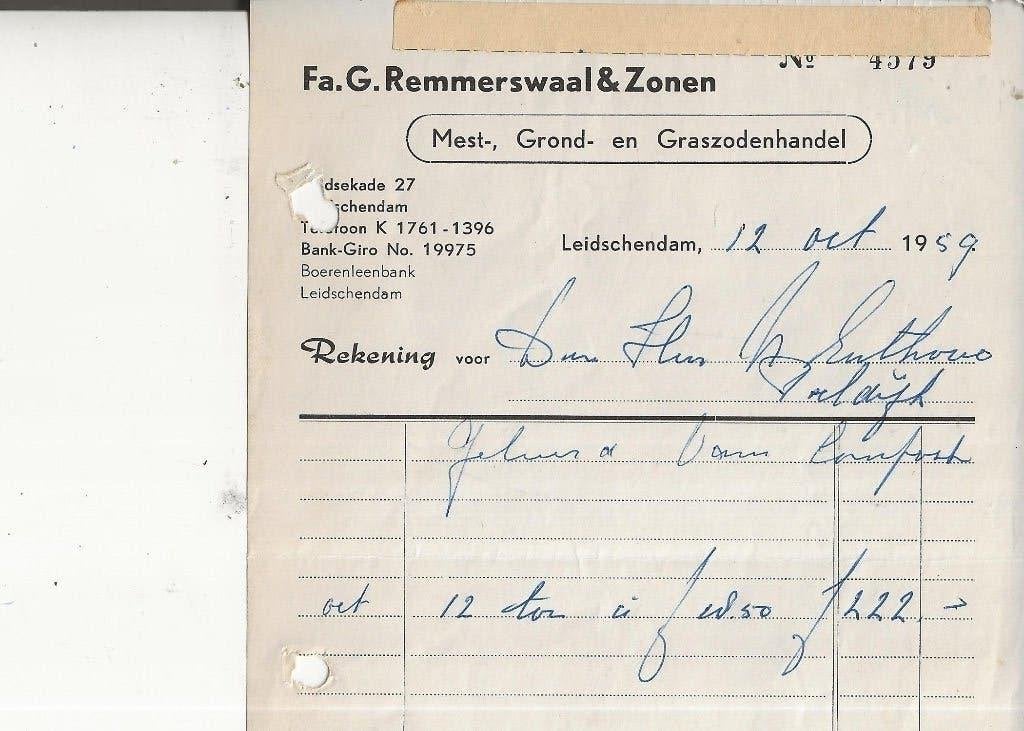 Nº 4579
Fa. G. Remmerswaal & Zonen
Mest-, Grond- en Graszodenhandel
dsekade 27
schendam
Telefoon K 1761-1396
Bank-Giro No. 19975
Boerenleenbank
Leidschendam
Leidschendam, 12 oct 1959.
Rekening voor Den Heer Enthoven
Poeldijk
Geleverd Vam Compost
oct 12 ton à ƒ 18.50 ƒ 222 –